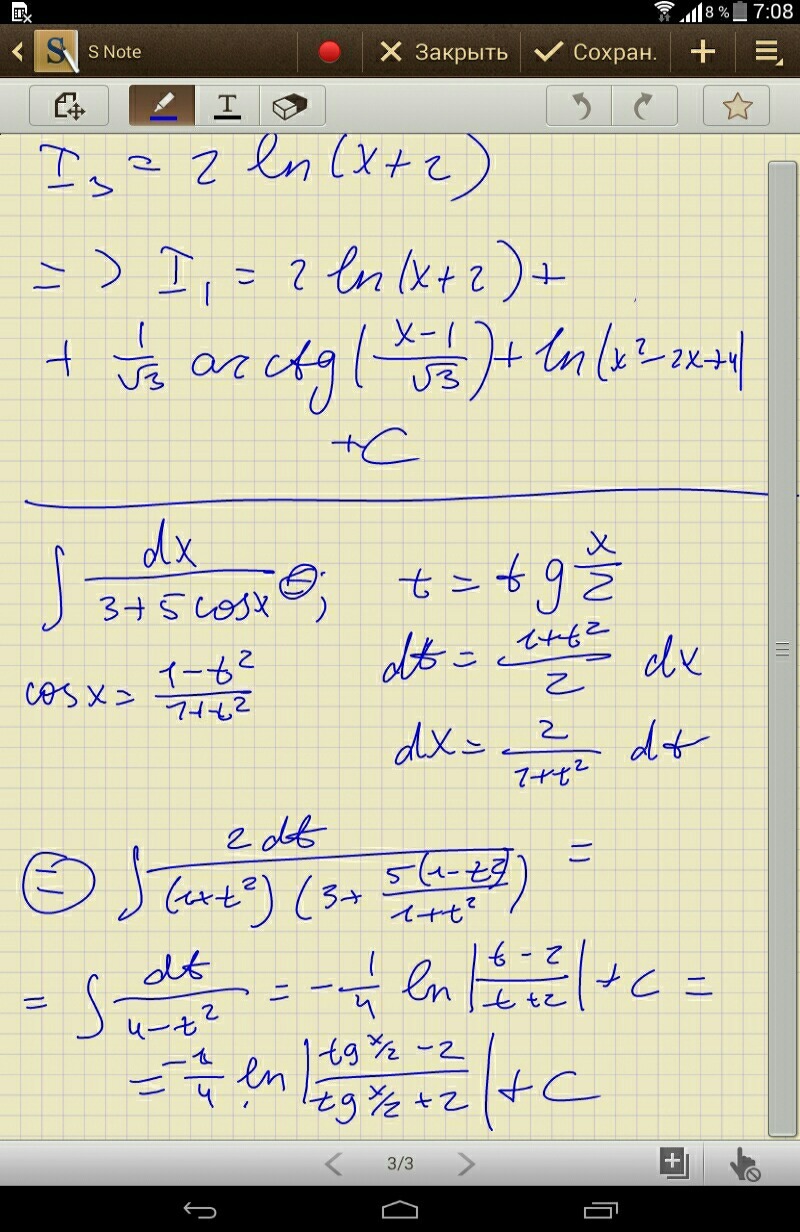 8 % 7:08
S Note Закрыть Сохран.
T
I₃ = 2 ln(x+2)
=> I₁ = 2 ln(x+2) +
+ 1/√3 arctg(x-1/√3) + ln(x²-2x+4|
+C
∫ dx/(3+5cosx) ⊜; t = tg x/2
cosx = (1-t²)/(1+t²) dt = (1+t²)/2 dx
dx = 2/(1+t²) dt
⊜ ∫ 2dt/((1+t²)(3+5(1-t²)/(1+t²))) =
= ∫ dt/(4-t²) = -1/4 ln|(t-2)/(t+2)| + C =
= -1/4 ln|(tg x/2 - 2)/(tg x/2 + 2)| + C
3/3